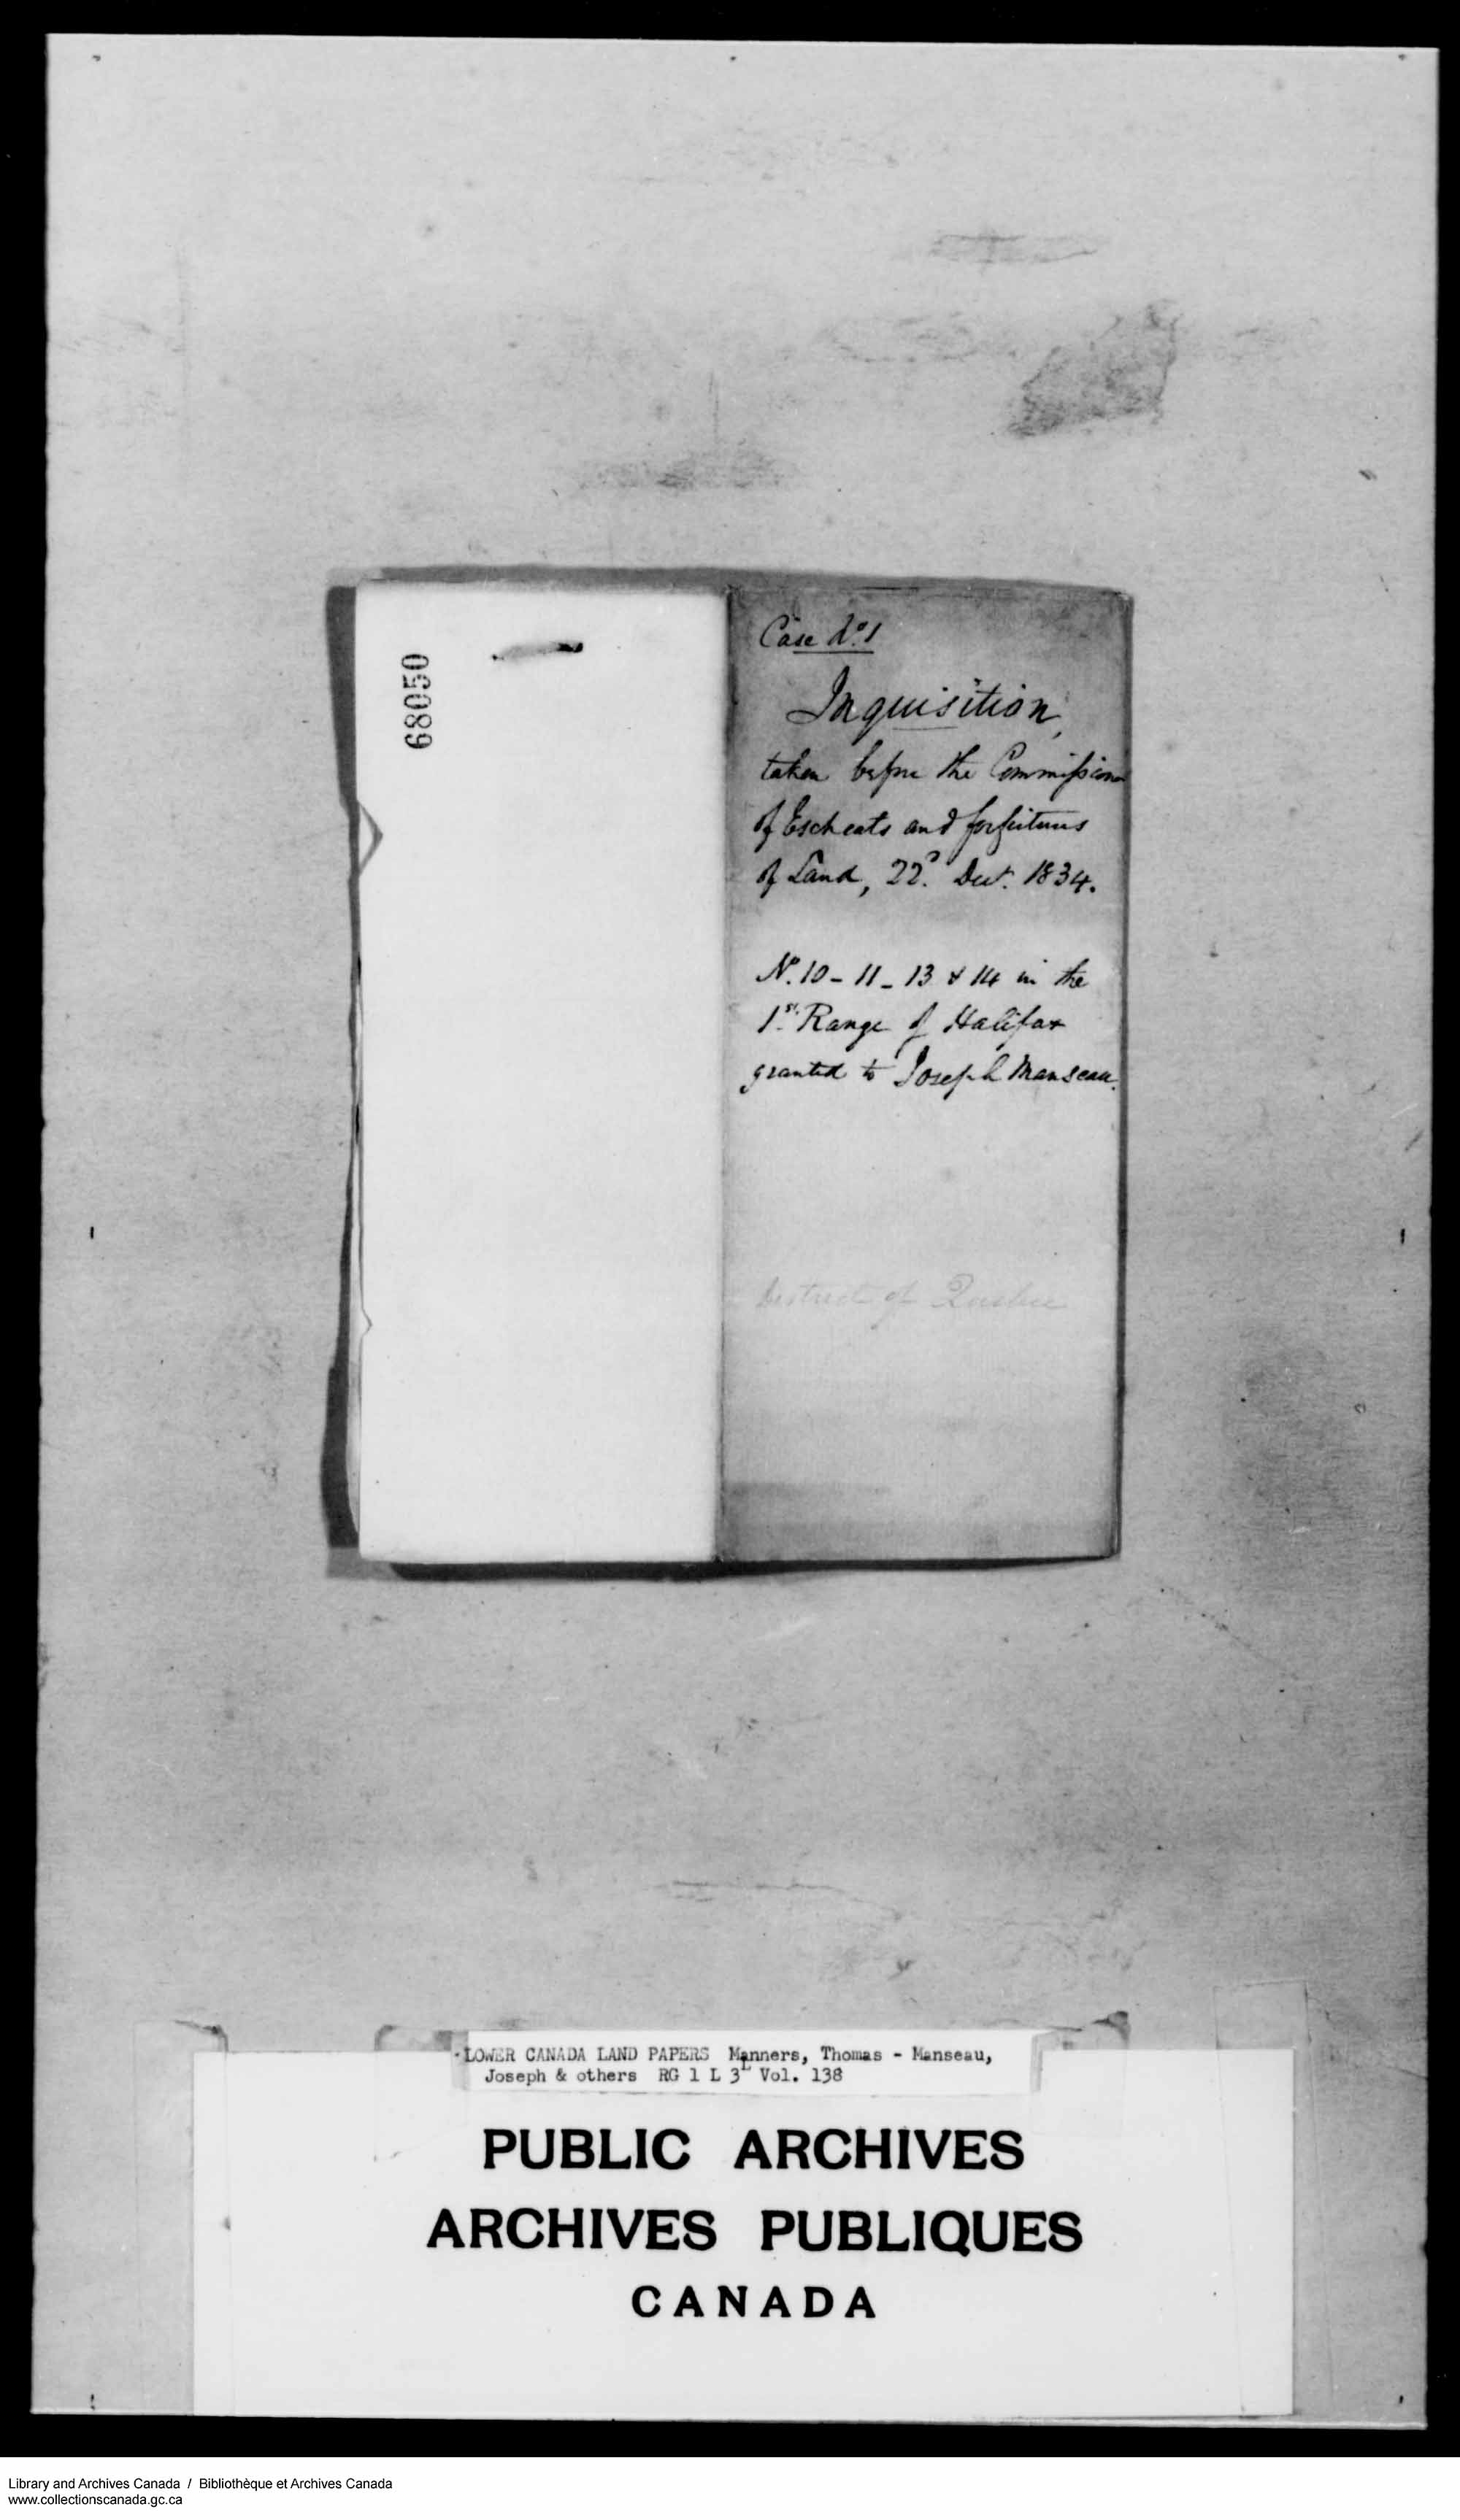 68050
Case No. 1
Inquisition,
taken before the Commissioner
of Escheats and forfeitures
of Land, 22d. Decr. 1834.
No. 10 - 11 - 13 & 14 in the
1st. Range of Halifax
granted to Joseph Manseau.
District of Quebec
LOWER CANADA LAND PAPERS Manners, Thomas - Manseau,
Joseph & others RG 1 L 3L Vol. 138
PUBLIC ARCHIVES
ARCHIVES PUBLIQUES
CANADA
Library and Archives Canada / Bibliothèque et Archives Canada
www.collectionscanada.gc.ca